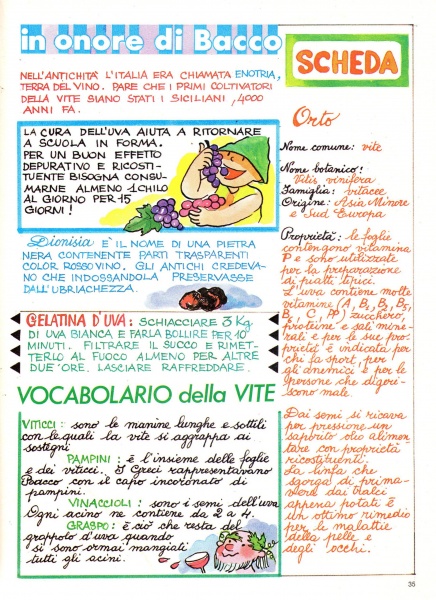 in onore di Bacco
NELL'ANTICHITÀ L'ITALIA ERA CHIAMATA ENOTRIA,
TERRA DEL VINO. PARE CHE I PRIMI COLTIVATORI
DELLA VITE SIANO STATI I SICILIANI, 4000
ANNI FA.
LA CURA DELL'UVA AIUTA A RITORNARE
A SCUOLA IN FORMA.
PER UN BUON EFFETTO
DEPURATIVO E RICOSTI-
TUENTE BISOGNA CONSU-
MARNE ALMENO 1 CHILO
AL GIORNO PER 15
GIORNI!
Dionisia È IL NOME DI UNA PIETRA
NERA CONTENENTE PARTI TRASPARENTI
COLOR ROSSO VINO. GLI ANTICHI CREDEVA-
NO CHE INDOSSANDOLA PRESERVASSE
DALL'UBRIACHEZZA.
GELATINA D'UVA: SCHIACCIARE 3 Kg.
DI UVA BIANCA E FARLA BOLLIRE PER 10
MINUTI. FILTRARE IL SUCCO E RIMET-
TERLO AL FUOCO ALMENO PER ALTRE
DUE ORE. LASCIARE RAFFREDDARE.
VOCABOLARIO della VITE
VITICCI: sono le manine lunghe e sottili
con le quali la vite si aggrappa ai
sostegni
PAMPINI: è l'insieme delle foglie
e dei viticci. I Greci rappresentavano
Bacco con il capo incoronato di
pampini.
VINACCIOLI: sono i semi dell'uva
Ogni acino ne contiene da 2 a 4.
GRASPO: è ciò che resta del
grappolo d'uva quando
si sono ormai mangiati
tutti gli acini.
SCHEDA
Orto
Nome comune: vite
Nome botanico:
Vitis vinifera
Famiglia: vitacee
Origine: Asia Minore
e Sud Europa
Proprietà: le foglie
contengono vitamina
P e sono utilizzate
per la preparazione
di piatti tipici.
L'uva contiene molte
vitamine (A, B1, B2, B5,
B6, C, PP) zucchero,
proteine e sali mine-
rali e per le sue pro-
prietà è indicata per
chi fa sport, per
gli anemici e per le
persone che digeri-
scono male.
Dai semi si ricava
per pressione un
saporito olio alimen-
tare con proprietà
ricostituenti.
La linfa che
sgorga di prima-
vera dai tralci
appena potati è
un ottimo rimedio
per le malattie
della pelle e
degli occhi.
35